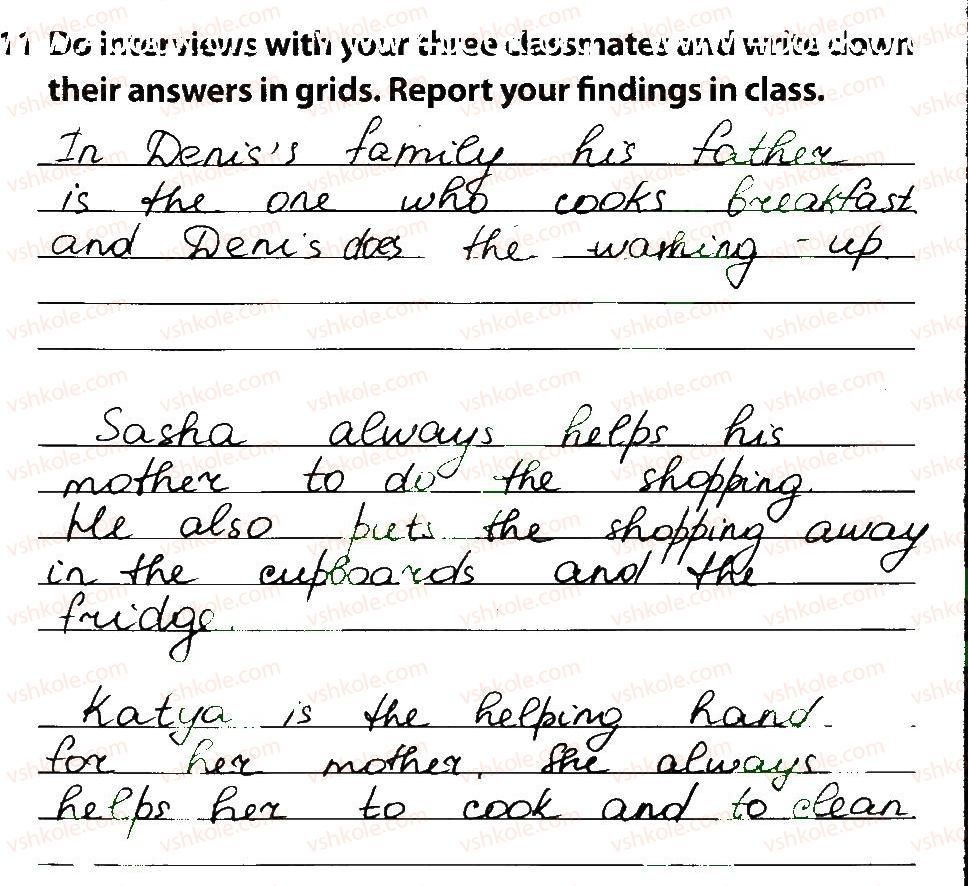 11 Do interviews with your three classmates and write down
their answers in grids. Report your findings in class.
In Denis's family his father
is the one who cooks breakfast
and Denis does the washing-up.
Sasha always helps his
mother to do the shopping.
He also puts the shopping away
in the cupboards and the
fridge.
Katya is the helping hand
for her mother. She always
helps her to cook and to clean.